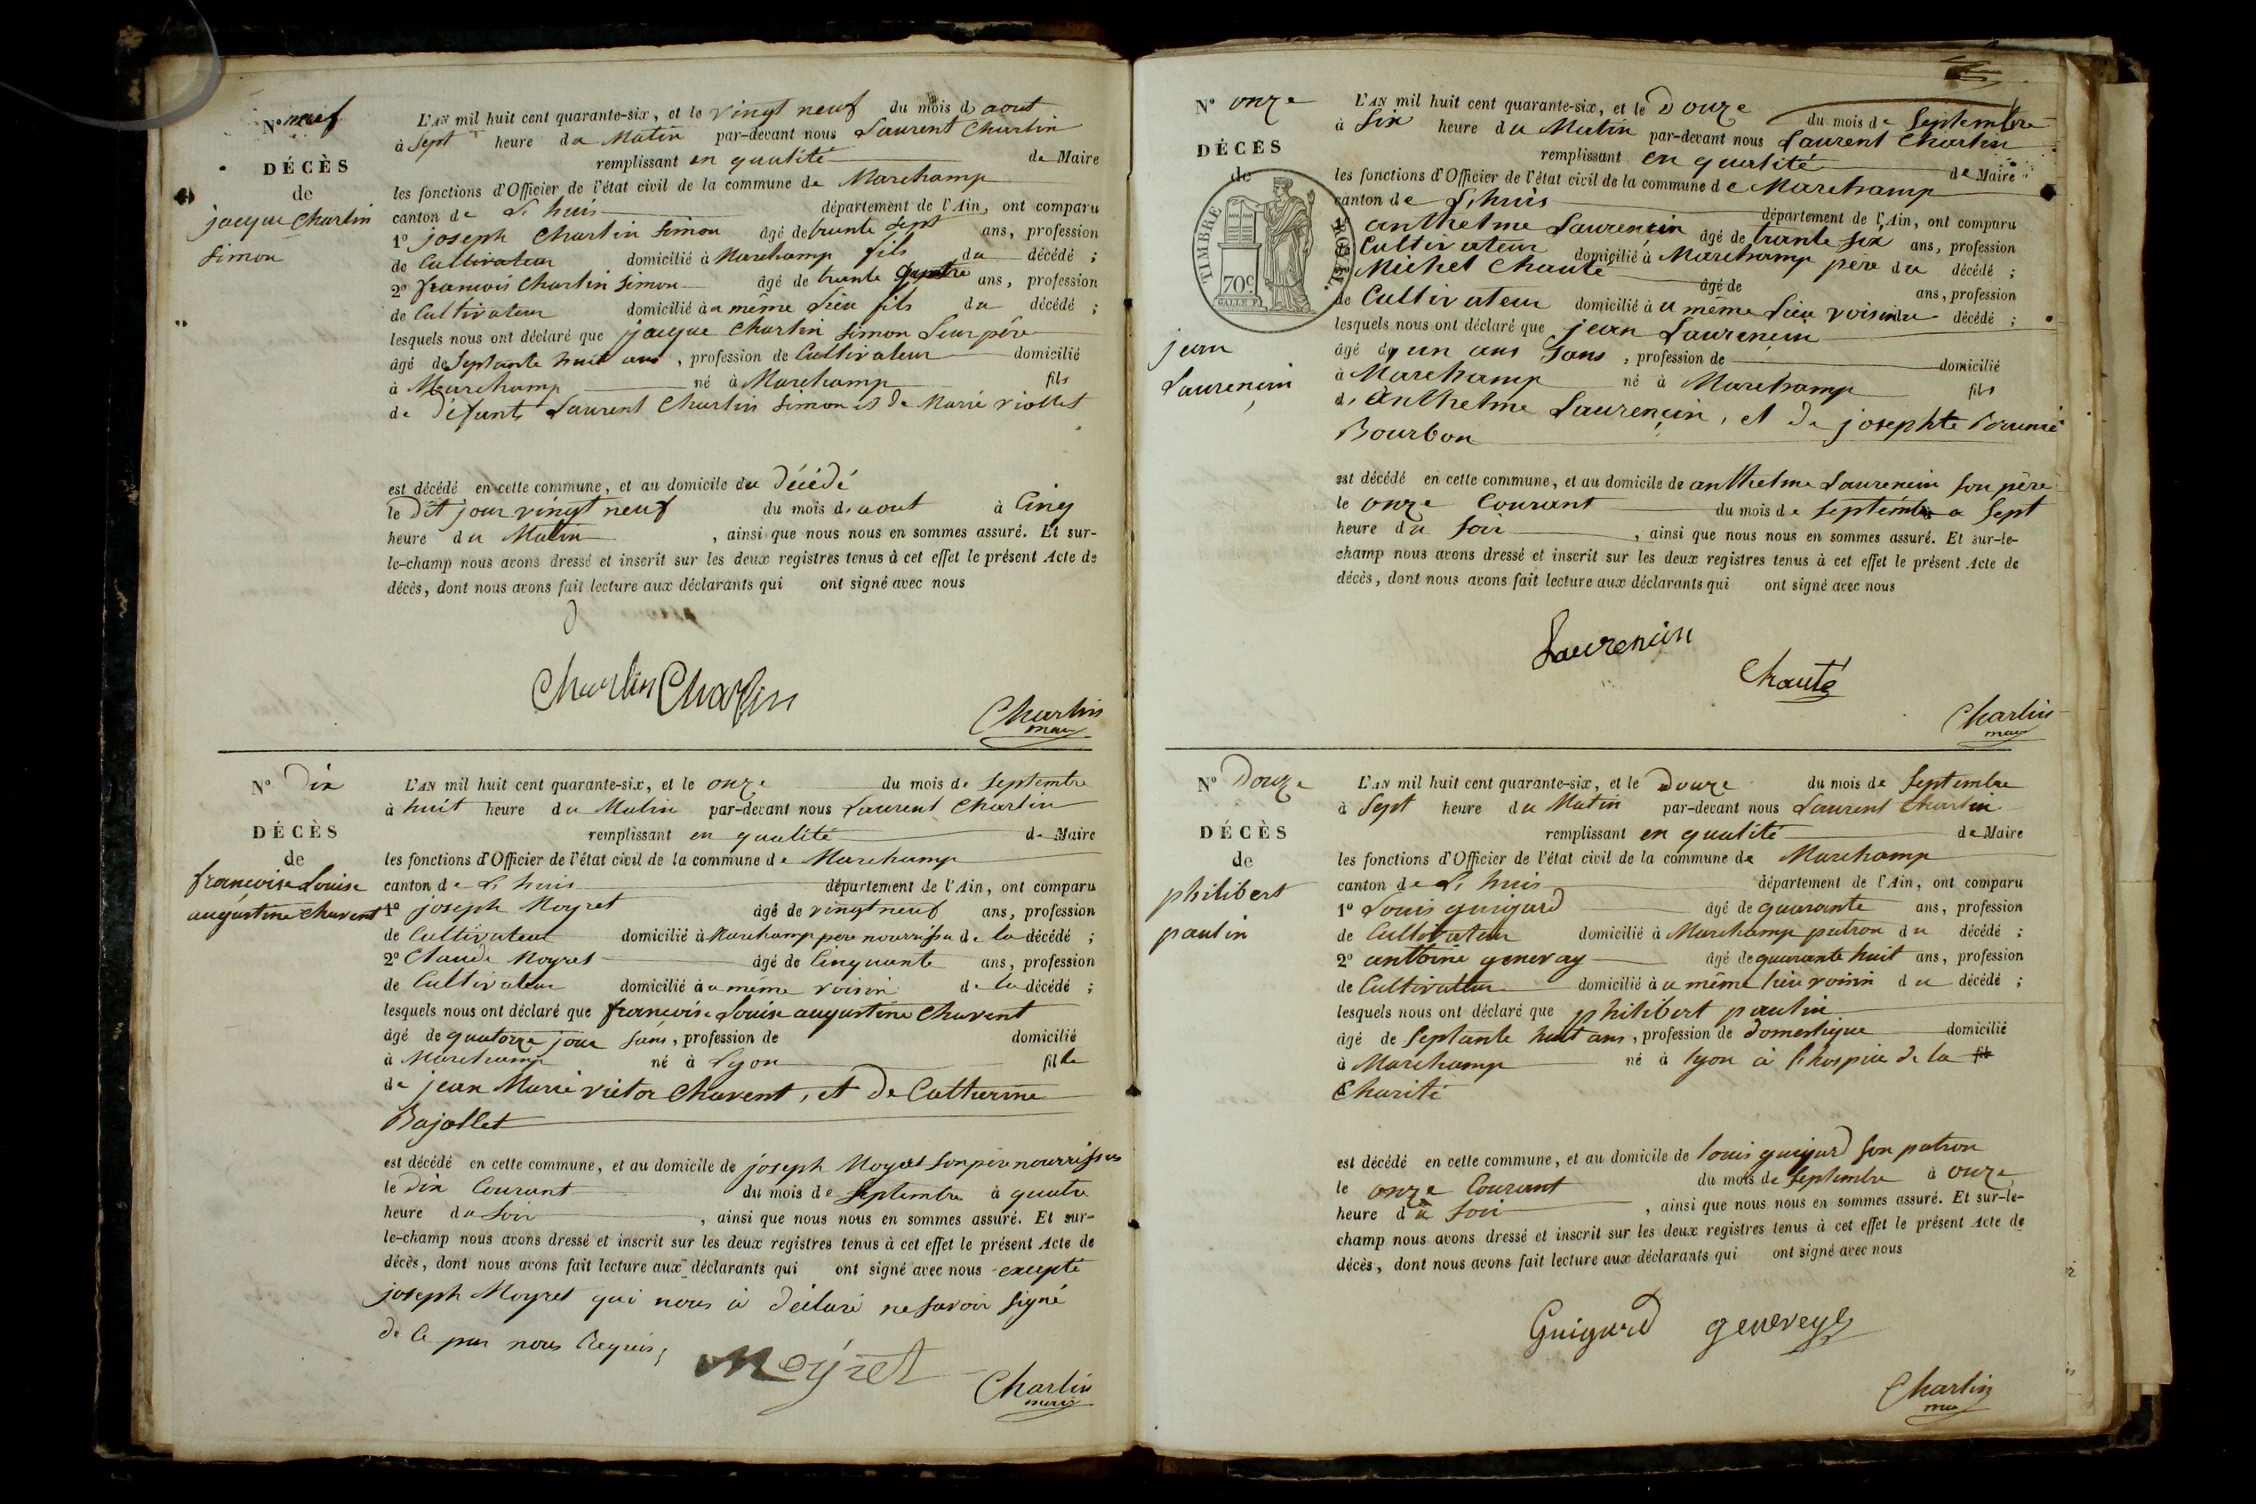 N° neuf
DÉCÈS
de
jacque Charlin
Simon
L'AN mil huit cent quarante-six, et le vingt neuf du mois d aout
à Sept heure du Matin par-devant nous Laurent Charlin
remplissant en qualité de Maire
les fonctions d'Officier de l'état civil de la commune de Marchamp
canton de L'huis département de l'Ain, ont comparu
1° joseph Charlin Simon âgé de trante Sept ans, profession
de Cultivateur domicilié à Marchamp fils du décédé ;
2° francois Charlin Simon âgé de trante quatre ans, profession
de Cultivateur domicilié au même Lieu fils du décédé ;
lesquels nous ont déclaré que jacque Charlin Simon Leur père
âgé de Septante huit ans, profession de Cultivateur domicilié
à Marchamp né à Marchamp fils
de défunts Laurent Charlin Simon et de Marie Viollet
est décédé en cette commune, et au domicile du décédé
le dit jour vingt neuf du mois d'aout à Cinq
heure du Matin, ainsi que nous nous en sommes assuré. Et sur-
le-champ nous avons dressé et inscrit sur les deux registres tenus à cet effet le présent Acte de
décès, dont nous avons fait lecture aux déclarants qui ont signé avec nous
Charlin Charlin
Charlin
maire
N° Dix
DÉCÈS
de
francoise Louise
augustine Chavent
L'AN mil huit cent quarante-six, et le onze du mois de Septembre
à huit heure du Matin par-devant nous Laurent Charlin
remplissant en qualité de Maire
les fonctions d'Officier de l'état civil de la commune de Marchamp
canton de L'huis département de l'Ain, ont comparu
1° joseph Moyret âgé de vingt neuf ans, profession
de Cultivateur domicilié à Marchamp pere nourrissie de la décédé ;
2° Claude Moyret âgé de Cinquante ans, profession
de Cultivateur domicilié au même voisin de la décédé ;
lesquels nous ont déclaré que francoise Louise augustine Chavent
âgé de quatorze jour Sans, profession de domicilié
à Marchamp né à Lyon fille
de jean Marie victor Chavent, et de Catherine
Bajollet
est décédé en cette commune, et au domicile de joseph Moyret Son père nourrissier
le dix Courant du mois de Septembre à quatre
heure du Soir, ainsi que nous nous en sommes assuré. Et sur-
le-champ nous avons dressé et inscrit sur les deux registres tenus à cet effet le présent Acte de
décès, dont nous avons fait lecture aux déclarants qui ont signé avec nous excepté
joseph Moyret qui nous à déclaré ne Savoir Signé
de ce par nous Requis,
Moyret
Charlin
maire
N° onze
DÉCÈS
de
TIMBRE ROYAL
70c
jean
Laurençin
L'AN mil huit cent quarante-six, et le Douze du mois de Septembre
à Six heure du Matin par-devant nous Laurent Charlin
remplissant en qualité de Maire
les fonctions d'Officier de l'état civil de la commune de Marchamp
canton de L'huis département de l'Ain, ont comparu
anthelme Laurençin âgé de trante Six ans, profession
Cultivateur domicilié à Marchamp père du décédé ;
Michel Chauté âgé de ans, profession
de Cultivateur domicilié au même Lieu voisin du décédé ;
lesquels nous ont déclaré que jean Laurençin
âgé de un ans Sans, profession de domicilié
à Marchamp né à Marchamp fils
d'anthelme Laurençin, et de josephte
Bourbon
est décédé en cette commune, et au domicile de anthelme Laurencin Son père
le onze Courant du mois de Septembre à Sept
heure du Soir, ainsi que nous nous en sommes assuré. Et sur-le-
champ nous avons dressé et inscrit sur les deux registres tenus à cet effet le présent Acte de
décès, dont nous avons fait lecture aux déclarants qui ont signé avec nous
Laurencin
Chauté
Charlin
maire
N° Douze
DÉCÈS
de
philibert
paulin
L'AN mil huit cent quarante-six, et le Douze du mois de Septembre
à Sept heure du Matin par-devant nous Laurent Charlin
remplissant en qualité de Maire
les fonctions d'Officier de l'état civil de la commune de Marchamp
canton de L'huis département de l'Ain, ont comparu
1° Louis guigard âgé de quarante ans, profession
de Cultivateur domicilié à Marchamp patron du décédé ;
2° antoine genevay âgé de quarante huit ans, profession
de Cultivateur domicilié au même lieu voisin du décédé ;
lesquels nous ont déclaré que philibert paulin
âgé de Septante huit ans, profession de domestique domicilié
à Marchamp né à lyon à l'hospice de la fils
Charité
est décédé en cette commune, et au domicile de louis guigard Son patron
le onze Courant du mois de Septembre à onze
heure du Soir, ainsi que nous nous en sommes assuré. Et sur-le-
champ nous avons dressé et inscrit sur les deux registres tenus à cet effet le présent Acte de
décès, dont nous avons fait lecture aux déclarants qui ont signé avec nous
Guigard geneveys
Charlin
maire